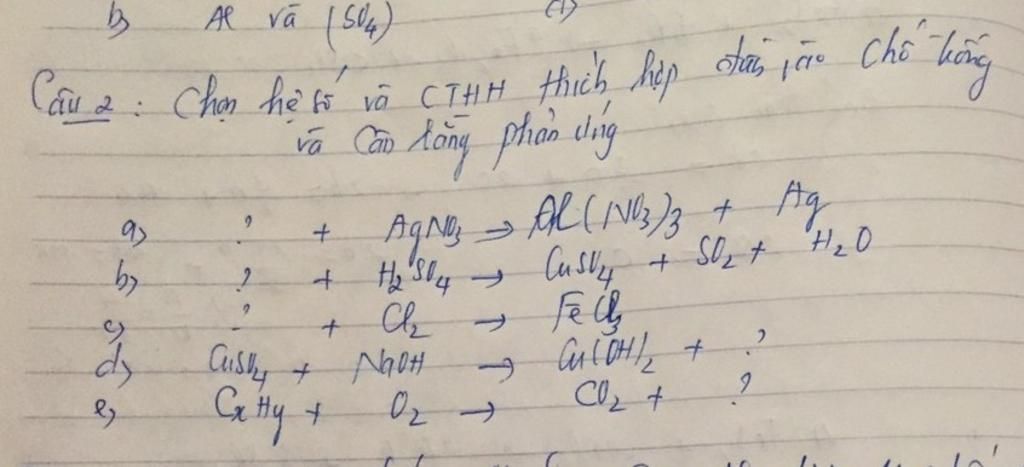 b) Al và (SO4)
Câu 2: Chọn hệ số và CTHH thích hợp chỗ trống
và cân bằng phản ứng
a) ? + AgNO3 → Al(NO3)3 + Ag
b) ? + H2SO4 → CuSO4 + SO2 + H2O
c) ? + Cl2 → FeCl3
d) CuSO4 + NaOH → Cu(OH)2 + ?
e) CxHy + O2 → CO2 + ?